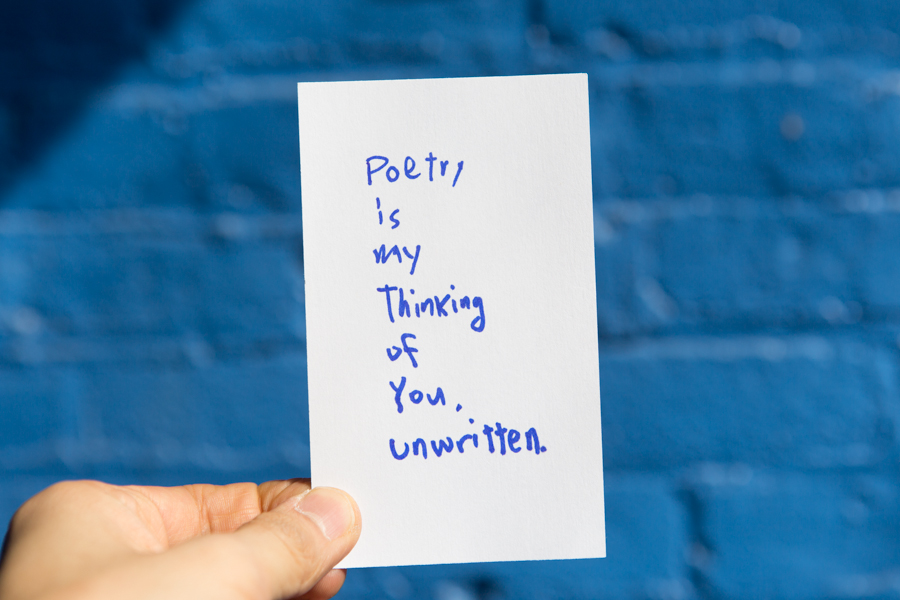 Poetry
is
my
Thinking
of
You,
unwritten.